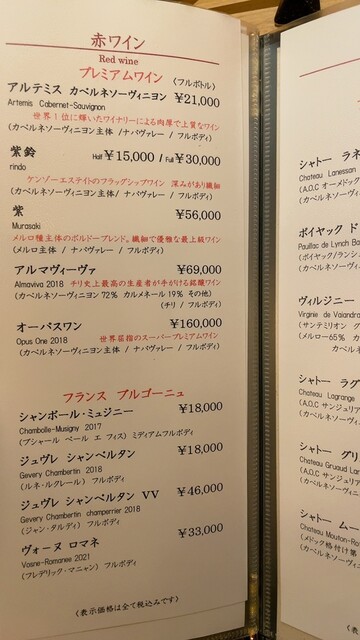 赤ワイン
Red wine
プレミアムワイン 〈フルボトル〉
アルテミス カベルネソーヴィニヨン ¥21,000
Artemis Cabernet-Sauvignon
世界1位に輝いたワイナリーによる肉厚で上質なワイン
(カベルネソーヴィニヨン主体 / ナパヴァレー / フルボディ)
紫鈴 Half ¥15,000 / Full ¥30,000
rindo
ケンゾーエステイトのフラッグシップワイン 深みがあり繊細
(カベルネソーヴィニヨン主体 / ナパヴァレー / フルボディ)
紫 ¥56,000
Murasaki
メルロ種主体のボルドーブレンド。繊細で優雅な最上級ワイン
(メルロ主体 / ナパヴァレー / フルボディ)
アルマヴィーヴァ ¥69,000
Almaviva 2018 チリ史上最高の生産者が手がける銘醸ワイン
(カベルネソーヴィニヨン 72% カルメネール 19% その他)
(チリ / フルボディ)
オーパスワン ¥160,000
Opus One 2018 世界屈指のスーパープレミアムワイン
(カベルネソーヴィニヨン主体 / ナパヴァレー / フルボディ)
フランス ブルゴーニュ
シャンボール・ミュジニー ¥18,000
Chambolle-Musigny 2017
(ブシャール ペール エ フィス) ミディアムフルボディ
ジュヴレ シャンベルタン ¥18,000
Gevery Chambertin 2018
(ルネ・ルクレール) フルボディ
ジュヴレ シャンベルタン VV ¥46,000
Gevery Chambertin champerrier 2018
(ジャン・タルディ) フルボディ
ヴォーヌ ロマネ ¥33,000
Vosne-Romanee 2021
(フレデリック・マニャン) フルボディ
〈表示価格は全て税込みです〉
シャトー ラネ
Chateau Lanessan
(A.O.C オーメドック
(カベルネソーヴィ
ポイヤック ド
Pauillac de Lynch Ba
(ポイヤック/ランシ
(カベルネソーヴィ
ヴィルジニー
Virginie de Valandra
(サンテミリオン
(メルロー65% カ
シャトー ラグ
Chateau Lagrange
(A.O.C サンジュリア
(カベルネソーヴィ
シャトー グリ
Chateau Gruaud Lar
(A.O.C サンジュリア
(カベルネソーヴィ
シャトー ムー
Chateau Mouton-Ro
(メドック格付け第
(カベルネソーヴィ
〈表